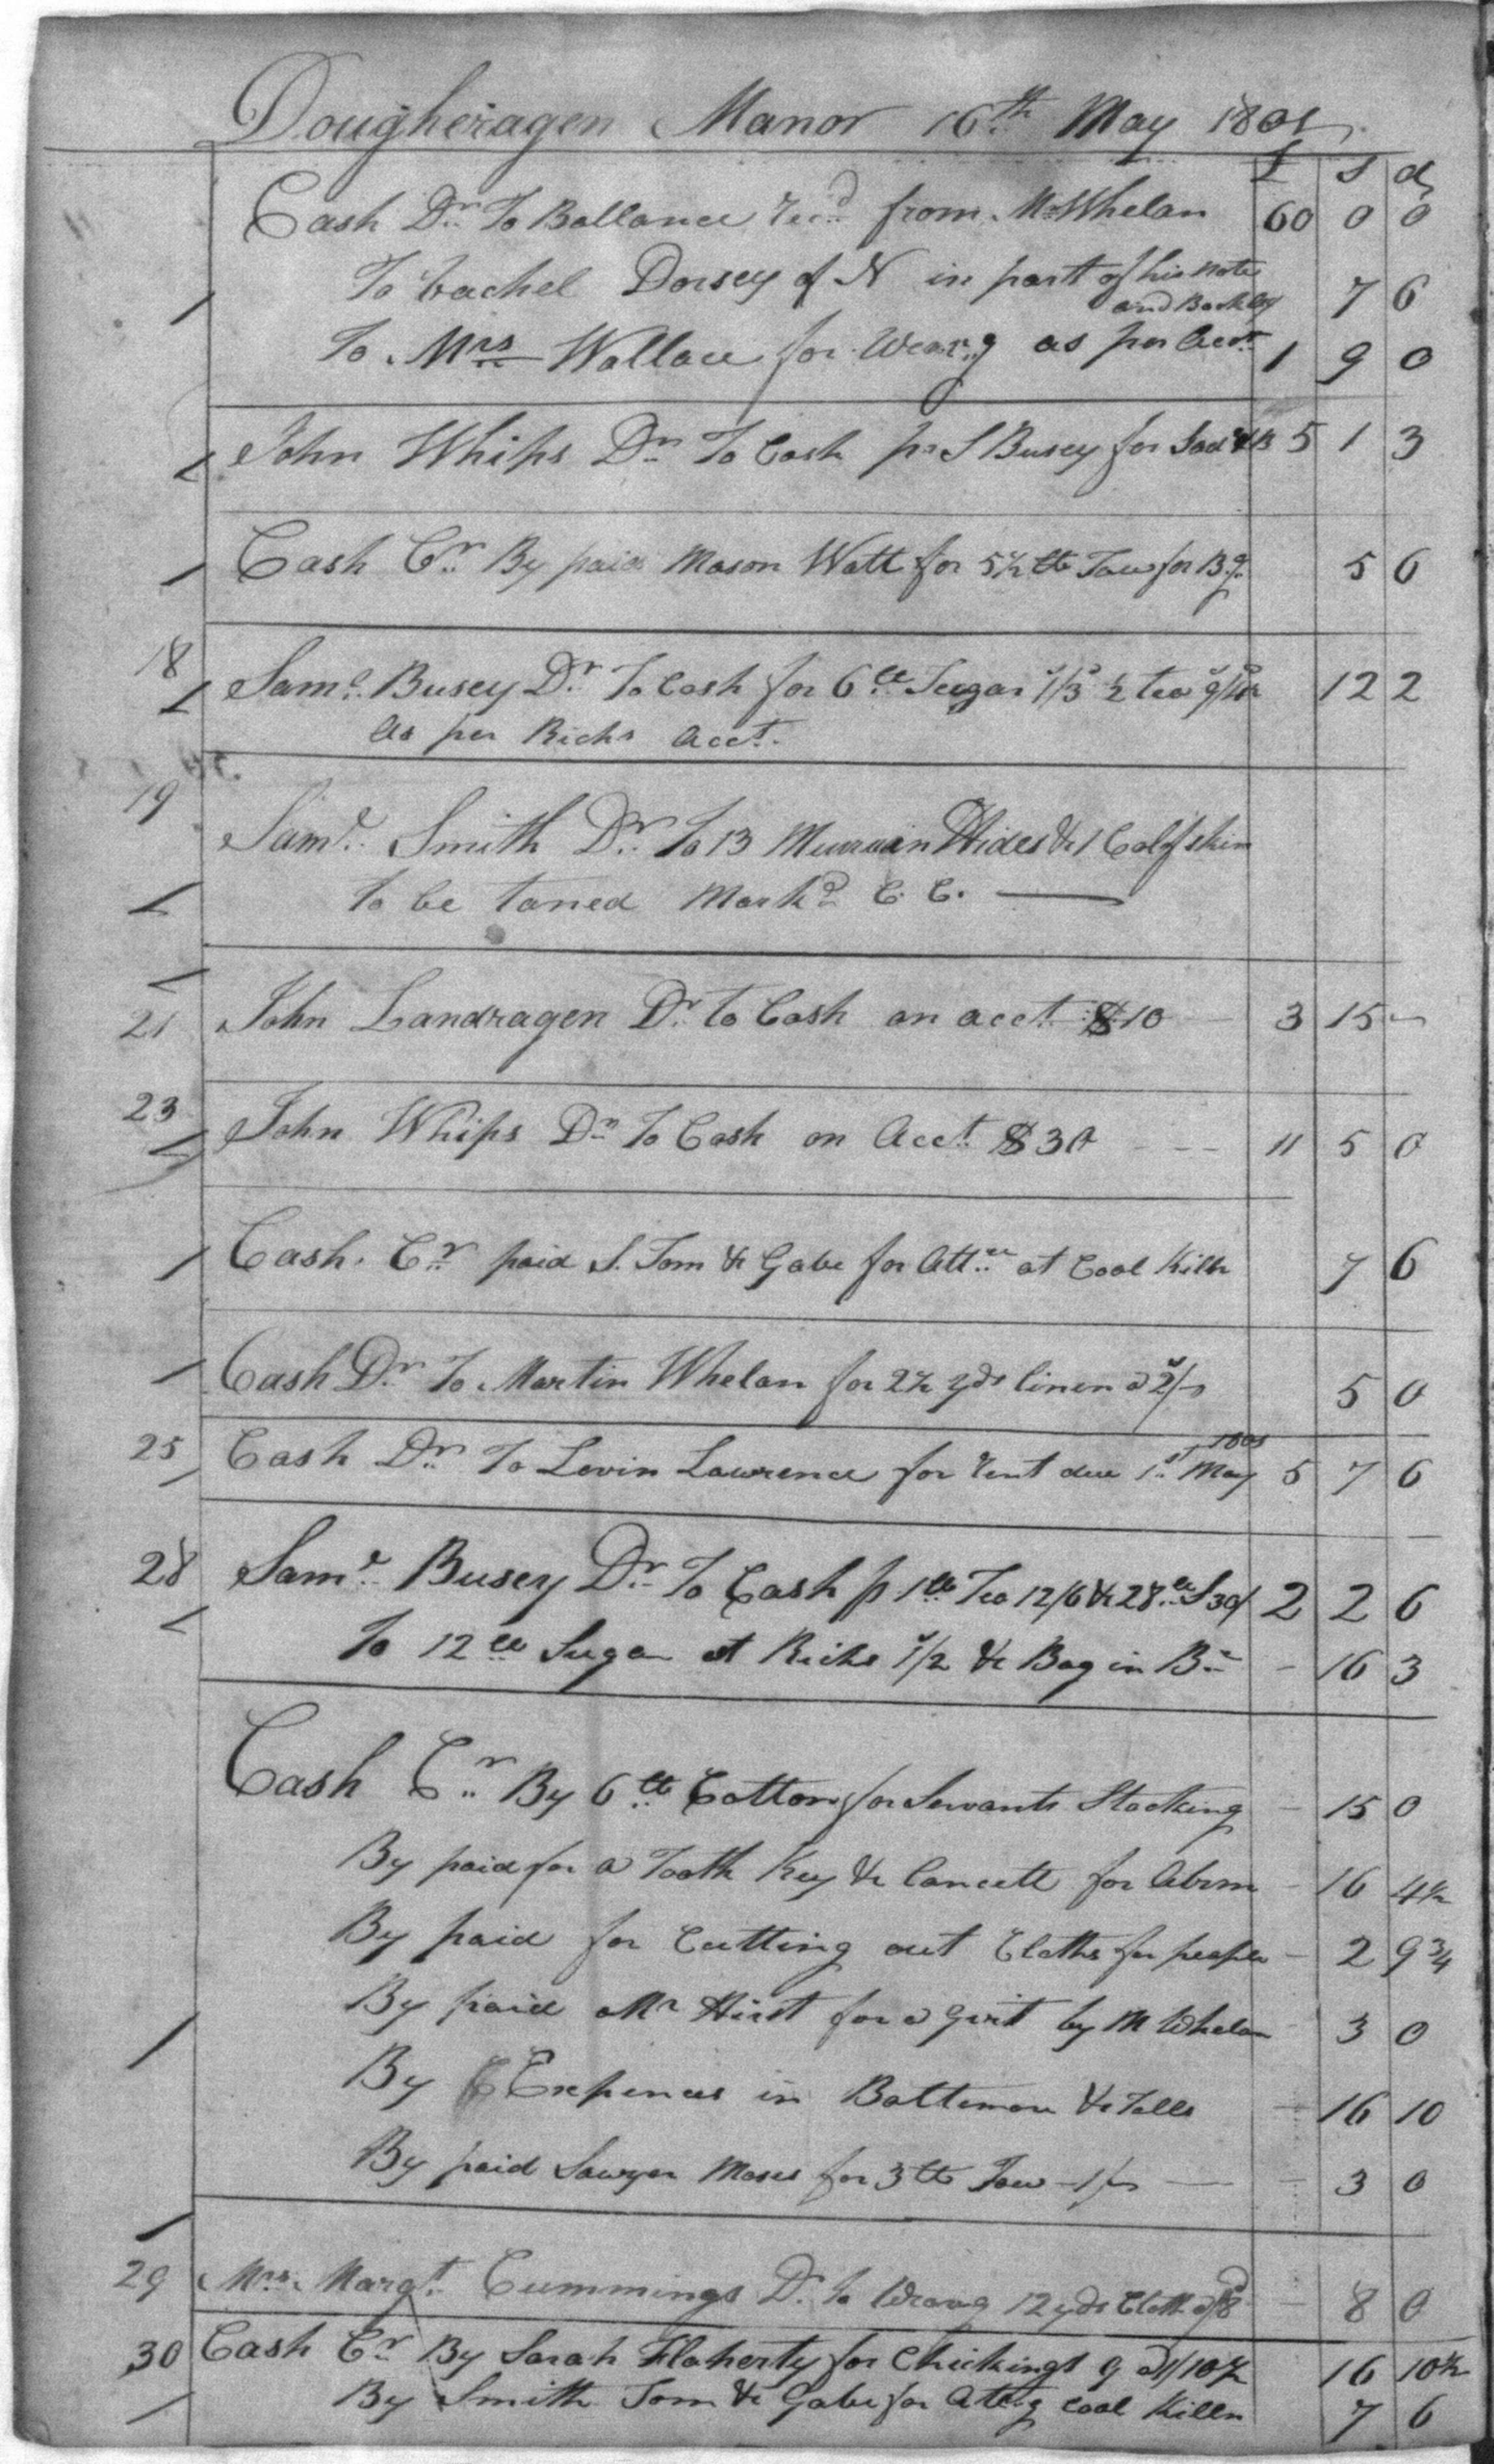 Dougheragen Manor 16th May 1801
£ s d
Cash Dr To Ballance recd from Mr Whelan 60 0 0
To Vachel Dorsey of N in part of his note 7 6
and
To Mrs Wallace for Weavg as per acct 1 9 0
John Whips Dr To Cash pr S Busey for 5 1 3
Cash Cr By paid Mason Watt for 5½ lb Tow for 5 6
18 Saml Busey Dr To Cash for 6 lb Sugar 1/3 ½ tea 12 2
as per Richs Acct.
19
Saml Smith Dr To 13 Murrain Hides & 1 Calfskin
to be taned Markd C. C.
21 John Landragen Dr to Cash on acct $10 3 15 -
23 John Whips Dr To Cash on Acct $30 11 5 0
Cash. Cr paid S. Tom & Gabe for Attce at Coal Kiln 7 6
Cash Dr To Martin Whelan for 2½ yds linen a 2/- 5 0
1801
25 Cash Dr To Levin Lawrence for rent due 1st May 5 7 6
28 Saml Busey Dr To Cash p 1 lb Tea 12/6 & 28 lb S 30/ 2 2 6
To 12 lb Sugar at Richs 1/2 & Bag in - 16 3
Cash Cr By 6 lb Cotton for Servants Stocking - 15 0
By paid for a Tooth Key & Lancett for Abrm - 16 4½
By paid for Cutting out Cloths for people - 2 9¾
By paid Mr Hirst for a Girt by M Whelan 3 0
By Expences in Baltimore & Tolls 16 10
By paid Sawyer Moses for 3 lb Tow 1/- 3 0
29 Mrs. Margt Cummings Dr. to Weavg 12 yds Cloth a /8 8 0
30 Cash Cr By Sarah Flaherty for Chickings 9 a 1/10½ 16 10½
By Smith Tom & Gabe for Atteg Coal Killn 7 6